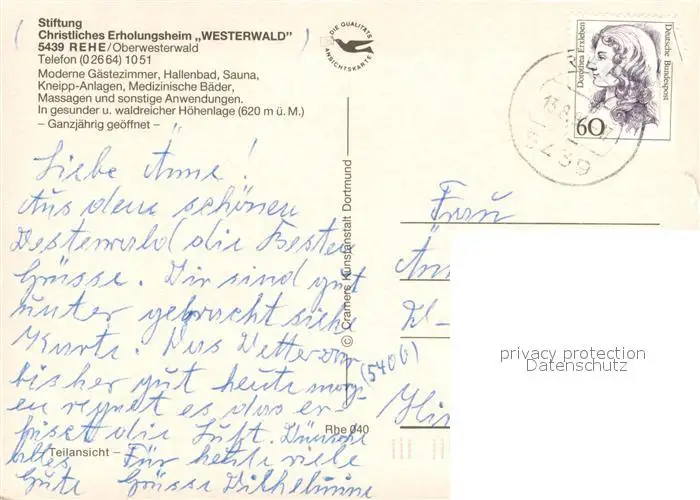 Stiftung
Christliches Erholungsheim „WESTERWALD"
5439 REHE/Oberwesterwald
Telefon (0 26 64) 10 51
Moderne Gästezimmer, Hallenbad, Sauna,
Kneipp-Anlagen, Medizinische Bäder,
Massagen und sonstige Anwendungen.
In gesunder u. waldreicher Höhenlage (620 m ü. M.)
– Ganzjährig geöffnet –
DIE QUALITÄTS
ANSICHTSKARTE
Dorothea Erxleben
Deutsche Bundespost
60
5439
Liebe Änne!
Aus dem schönen
Westerwald die Besten
Grüsse. Wir sind gut
unter gebracht siehe
Karte. Das Wetter war
bis her gut heute morg
en regnet es das er-
friset die Luft.
alles Für heute viele
Gute Grüsse Wilhelmine
Teilansicht –
Rhe 040
© Cramers Kunstanstalt Dortmund
Frau
(5400)
privacy protection
Datenschutz